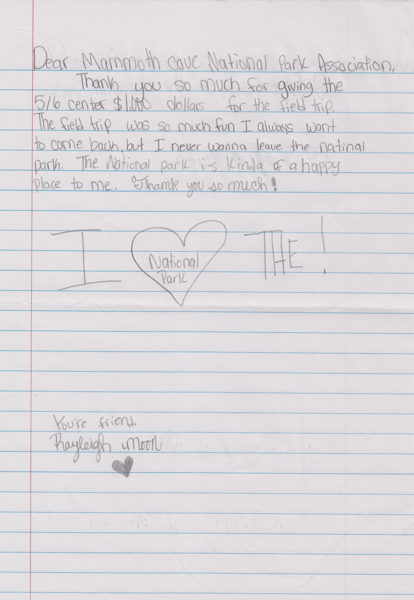 Dear Mammoth cave National Park Association,
Thank you so much for giving the
5/6 center $1,000 dollars for the field trip.
The field trip was so much fun I always want
to come back, but I never wanna leave the natinal
park. The National park is kinda of a happy
place to me. Thank you so much!
I National Park THE!
You're friend,
Rayleigh Moon